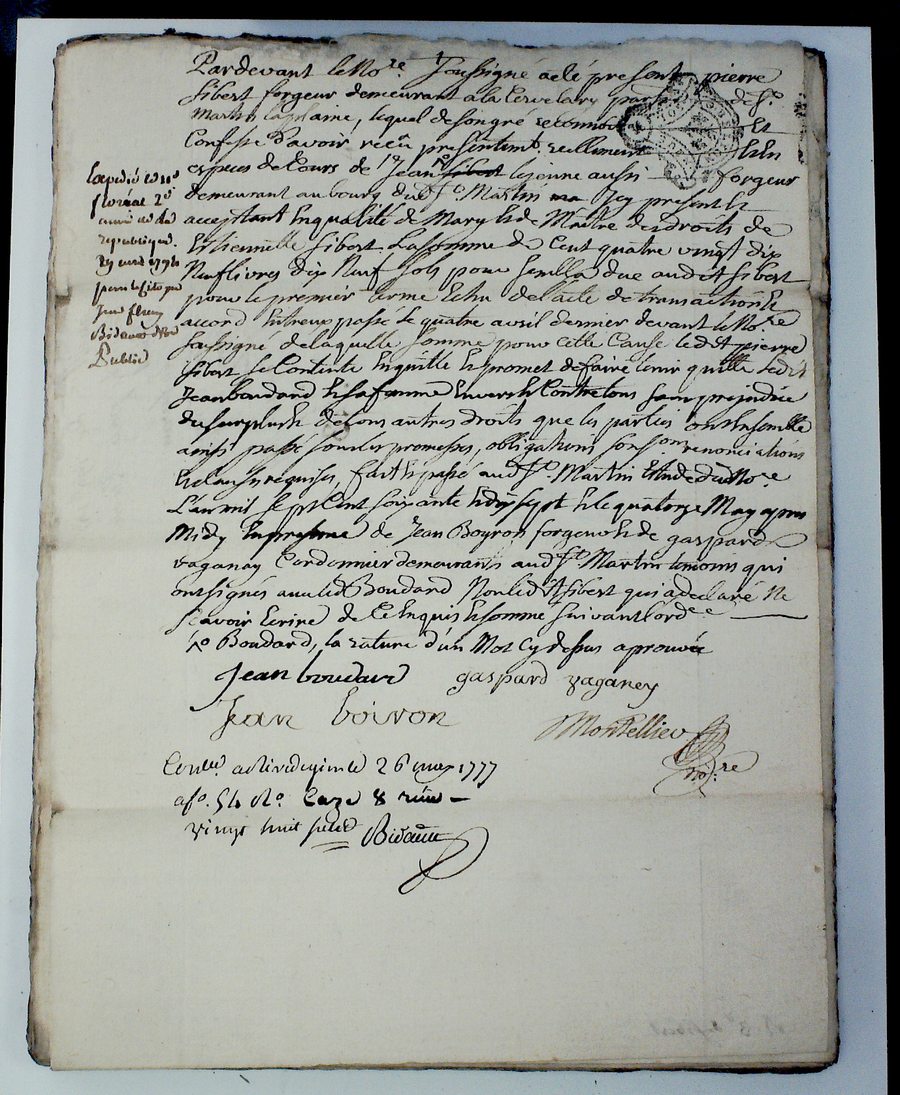 Pardevant le No.re soussigné a eté present pierre
sibert forgeur demeurant a la Cervelary par de St.
Martin la plaine, lequel de son gré reconnoit Et
Confesse d'avoir reçu presentemt. reellement Et En
especes de Cours de Sr. Jean sibert le jeune aussi forgeur
demeurant au bourg dud. St. Martin icy present Et
acceptant En qualité de Mary Et de Maître des droits de
Etiennette sibert La somme de Cent quatre vingt dix
Neuf livres dix Neuf sols pour semblable due audit sibert
pour le premier terme Echu de l'acte de transaction Et
accord Entreux passé Le quatre avril dernier devant le No.re
soussigné de laquelle somme pour Cette Cause ledt. pierre
sibert se Contente En quitte Et promet de faire tenir quitte ledit
Jean Boudard Et sa femme Envers Et Contre tous sans prejudice
du surplush de tous autres droits que les parties ont Ensemble
ainsi passé sous les promesses, obligations, soumons. renonciations
Et clauses requises, fait Et passé aud. St. Martin Etude dud. No.re
L'an mil sept Cent soixante Et dix sept Et le quatorze May apres
Midy En presence de Jean Boyron forgeur Et de gaspard
vaganay Cordonnier demeurants aud. St. Martin temoins qui
ont signés avec led Boudard Non led. sibert qui a declaré Ne
sçavoir Ecrire de Ce Enquis Et sommé suivant l'ordce
Boudard, la rature d'un Mot Cy dessus aprouvée
jean boudard gaspard vaganey
Jean boiron
Montellier
No.re
Expedié le 11e
floréal 2e
année de la
republique
Bidaud No.re
Public
Conlle. a Rivedegier le 26 may 1777
a fo. 54 Ro. Caze 8 reçu
vingt huit sols Bidauu